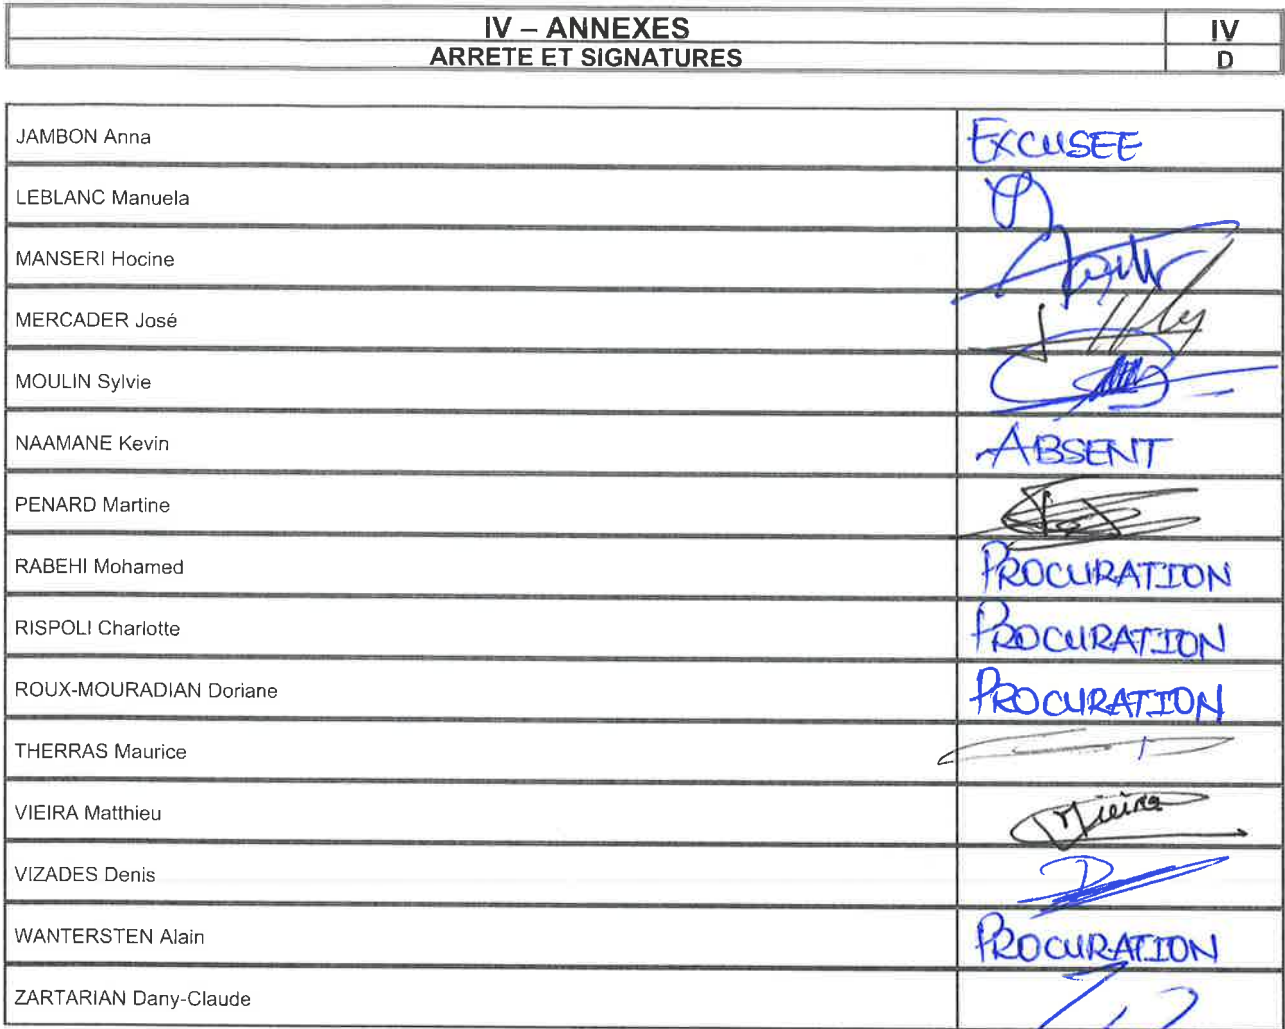 IV – ANNEXES IV
ARRETE ET SIGNATURES D
JAMBON Anna EXCUSEE
LEBLANC Manuela
MANSERI Hocine
MERCADER José
MOULIN Sylvie
NAAMANE Kevin ABSENT
PENARD Martine
RABEHI Mohamed PROCURATION
RISPOLI Charlotte PROCURATION
ROUX-MOURADIAN Doriane PROCURATION
THERRAS Maurice
VIEIRA Matthieu Vieira
VIZADES Denis
WANTERSTEN Alain PROCURATION
ZARTARIAN Dany-Claude